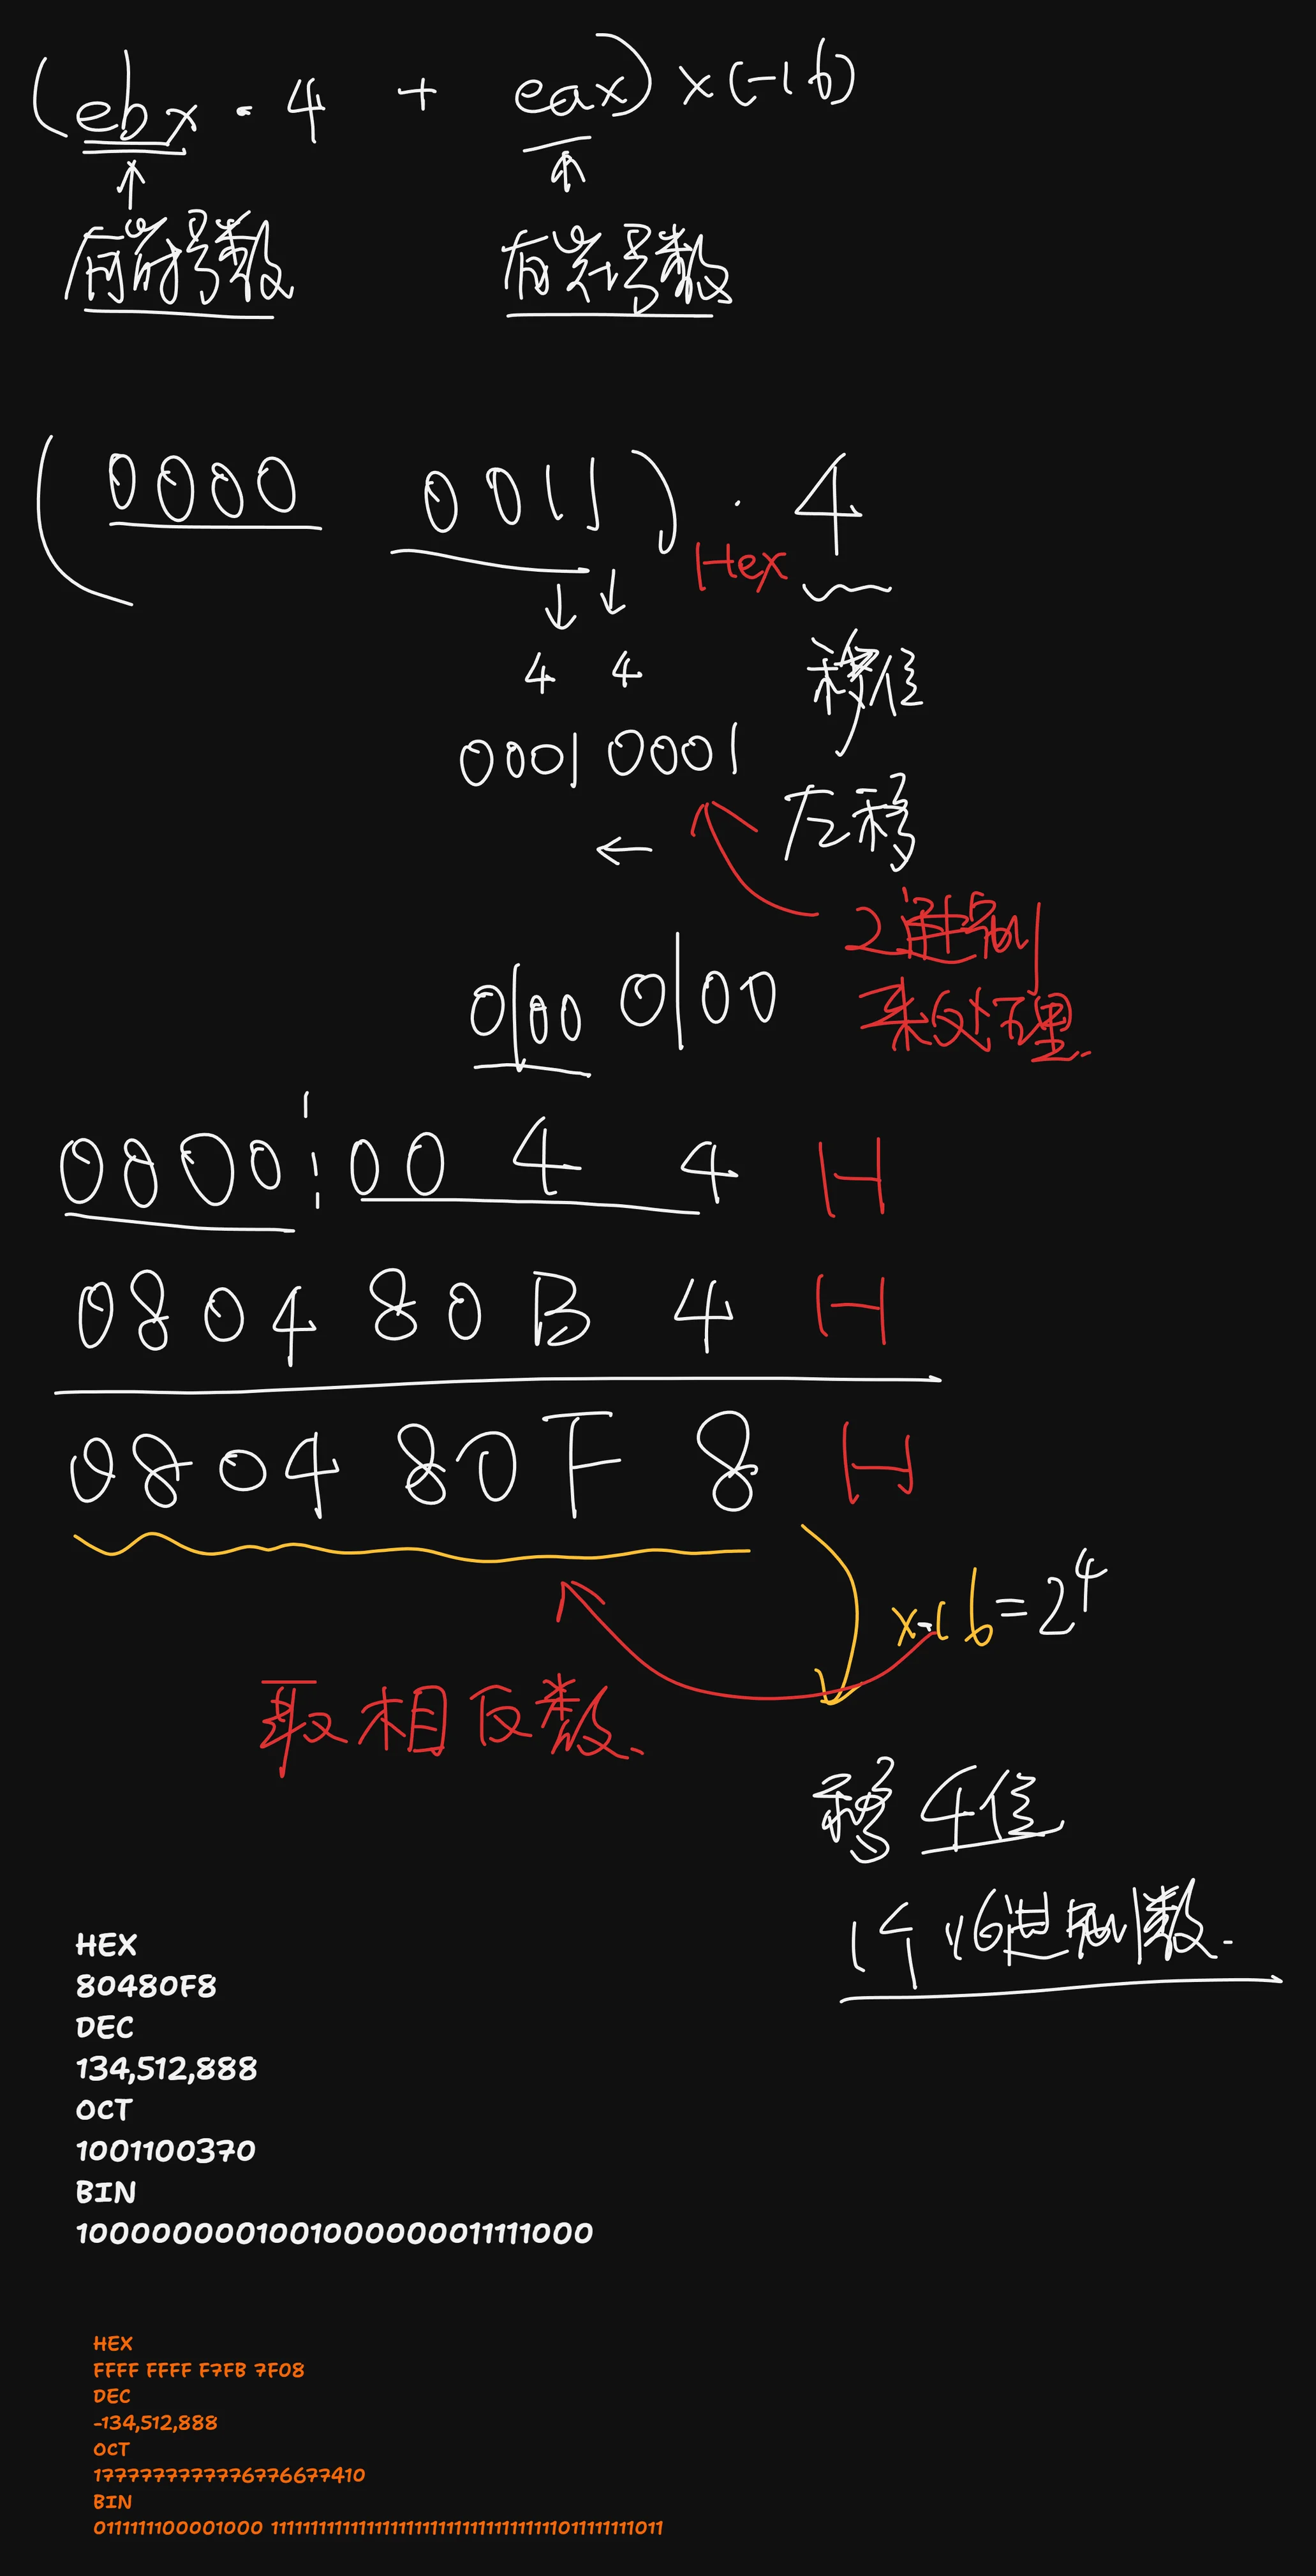 (ebx · 4 + eax) × (-16)
有符号数 有符号数
(0000 0011) · 4
Hex
4 4
移位
0001 0001
左移
2进制
来处理.
0100 0100
0000 0044 H
080480B4 H
080480F8 H
×-16=2⁴
取相反数.
移4位
1个16进制数.
HEX
80480F8
DEC
134,512,888
OCT
1001100370
BIN
1000000001001000000011111000
HEX
FFFF FFFF F7FB 7F08
DEC
-134,512,888
OCT